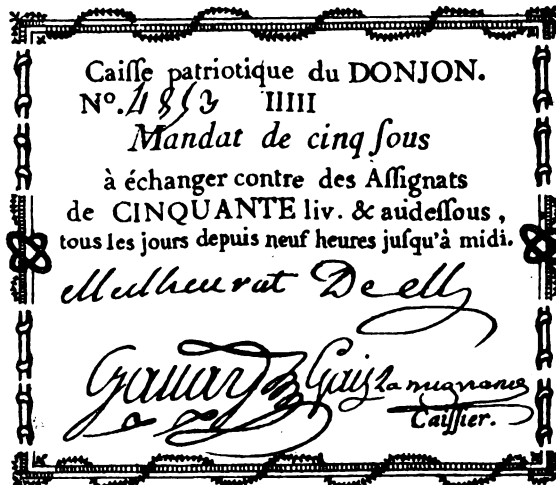 Caiſſe patriotique du DONJON.
Nº. 4853 IIIII
Mandat de cinq ſous
à échanger contre des Aſſignats
de CINQUANTE liv. & audeſſous ,
tous les jours depuis neuf heures juſqu'à midi.
Caiſſier.